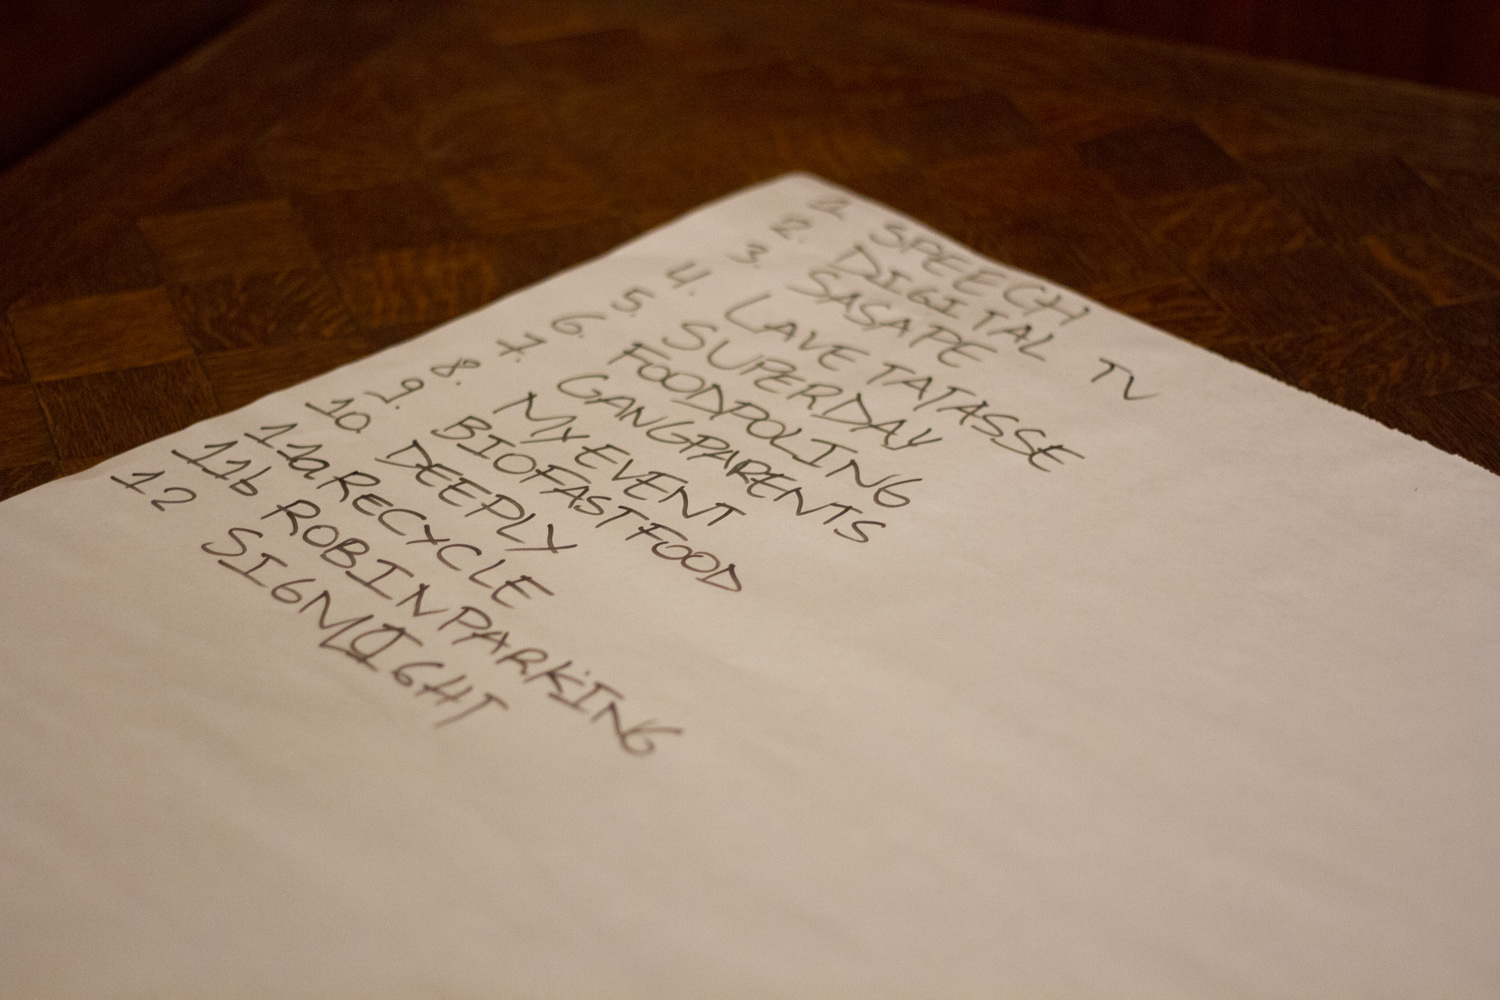 1. SPEECH
2. DIGITAL TV
3. SASAPE
4. LAVE TATASSE
5. SUPERDAY
6. FOODPOLING
7. GANGPARENTS
8. MYEVENT
9. BIOFASTFOOD
10. DEEPLY
11a RECYCLE
11b ROBINPARKING
12 SIGMLIGHT